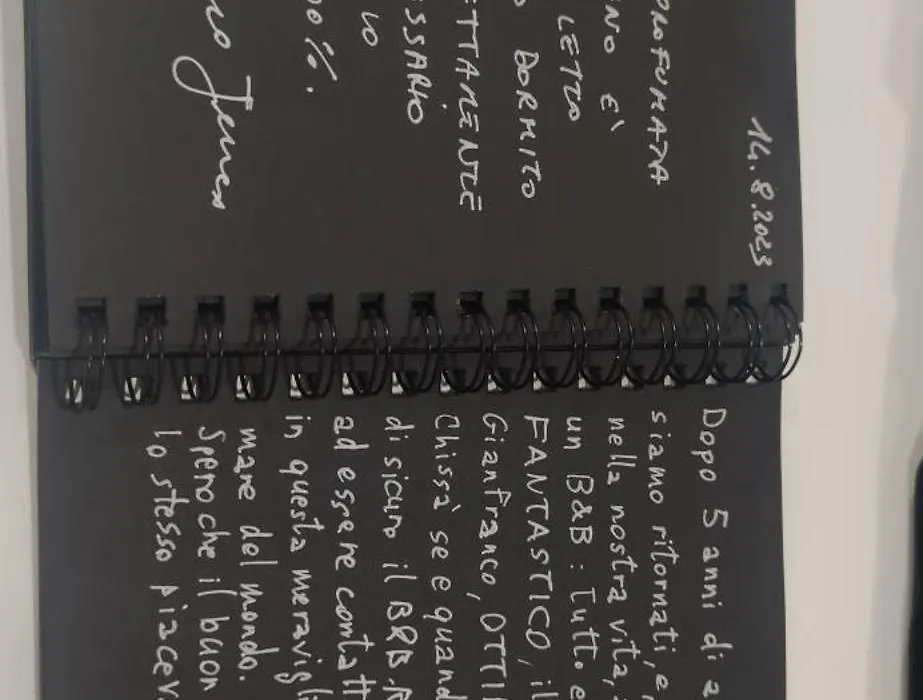 14.8.2023
PROFUMATA
NO E'
LETTO
O DORMITO
ETTAMENTE
ESSARIO
LO
00%.
Dopo 5 anni di a
siamo ritornati, e,
nella nostra vita,
un B&B: Tutto e
FANTASTICO, il
Gianfranco, OTTI
Chissà se e quand
di sicuro il B&B
ad essere contatt
in questa meravigl
mare del mondo.
Spero che il buon
lo stesso piacev